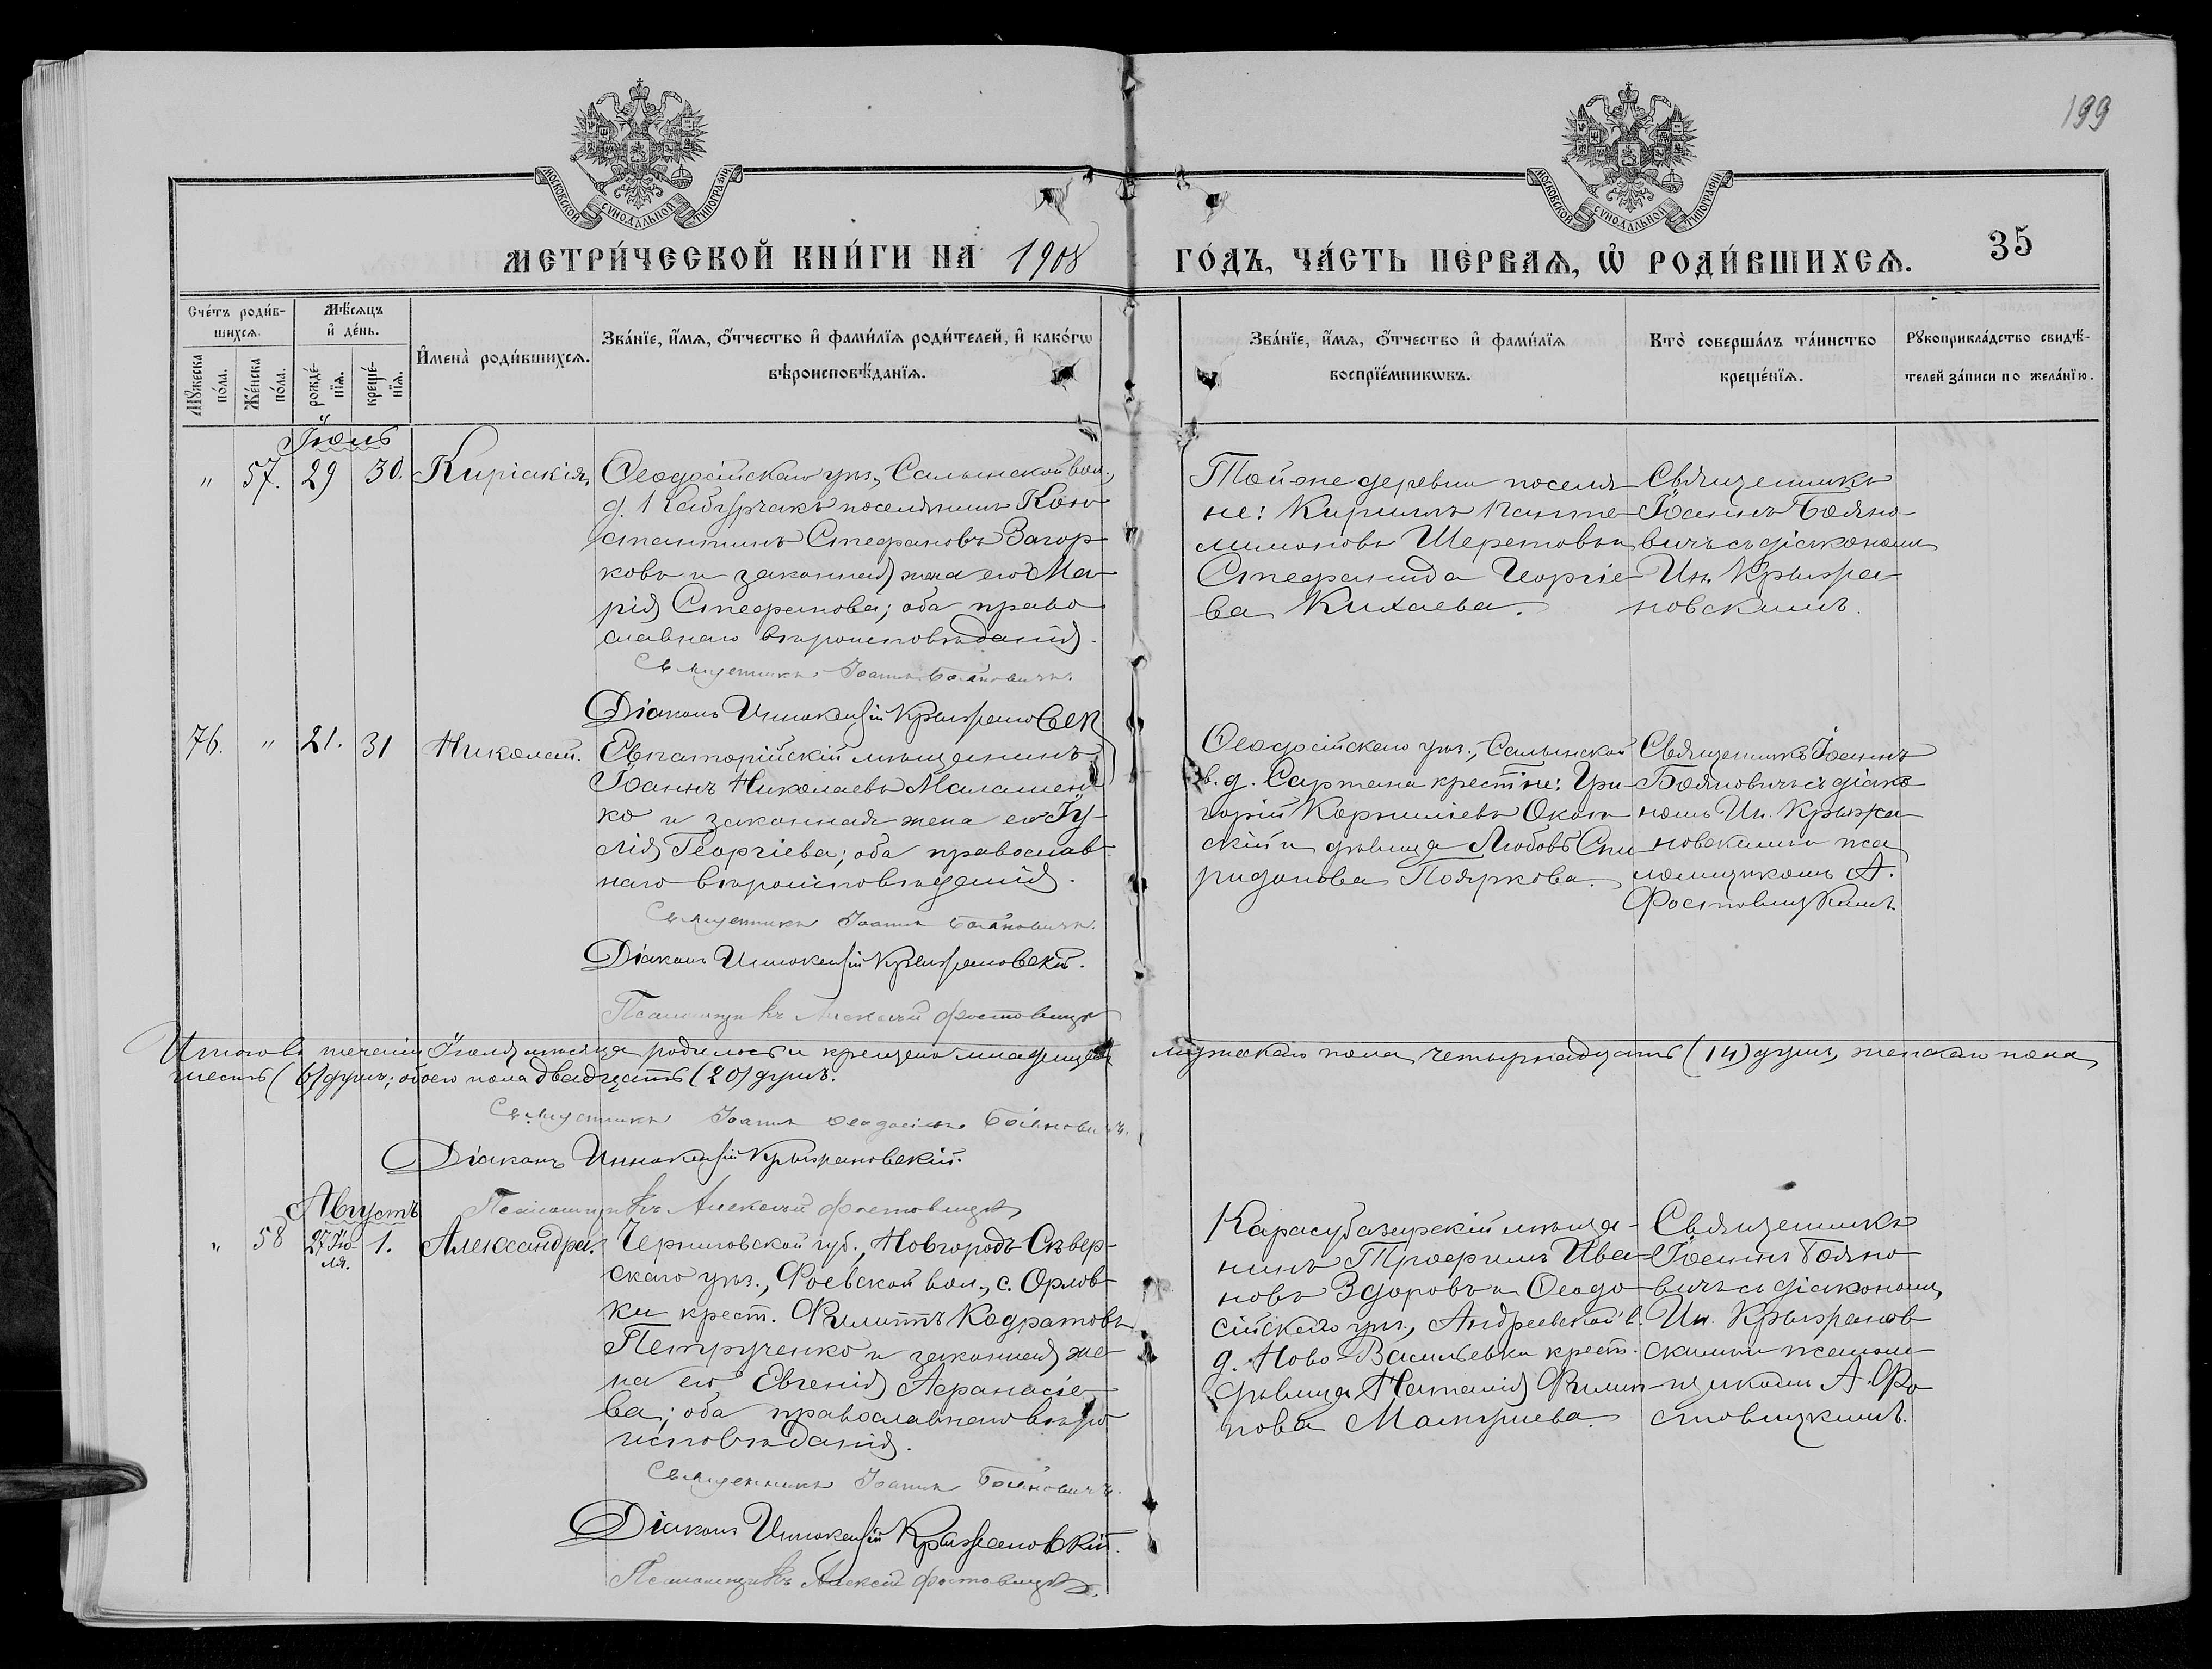 199
МОСКОВСКОЙ СѴНОДАЛЬНОЙ ТИПОГРАФІИ
МОСКОВСКОЙ СѴНОДАЛЬНОЙ ТИПОГРАФІИ
МЕТРИ́ЧЕСКОЙ КНИ́ГИ НА 1908 ГО́ДЪ, ЧА́СТЬ ПЕРВАѦ, Ѡ҆ РОДИ́ВШИХСѦ. 35
Сче́тъ роди́в-
шихсѧ.
Мꙋ́жеска по́ла.
Же́нска по́ла.
Мѣ́сѧцъ
и҆ де́нь.
рожде́-
нїѧ.
креще́-
нїѧ.
И҆мена̀ роди́вшихсѧ.
Зва́нїе, и҆́мѧ, ѻ҆́тчество и҆ фами́лїѧ роди́телей, и҆ како́гѡ
вѣроисповѣ́данїѧ.
Зва́нїе, и҆́мѧ, ѻ҆́тчество и҆ фами́лїѧ
воспрїе́мникѡвъ.
Кто̀ соверша́лъ та́инство
креще́нїѧ.
Рꙋкоприкла́дство свидѣ́-
телей за́писи по жела́нїю.
Іюль
„ 57. 29 30. Киріакія.
Ѳеодосійскаго уѣз., Салынской вол.,
д. Кабурчакъ поселянинъ Кон-
стантинъ Стефановъ Загор-
ковъ и законная жена его Ма-
рія Стефанова; оба право
славнаго вѣроисповѣданія.
Священникъ Іоаннъ Бояновичъ.
Діаконъ Иннокентій Крыжановск
Той-же деревни поселя
не: Кириллъ Панте
лимоновъ Шеретовъ и
Стефанида Георгіе
ва Кихаева.
Священникъ
Іоаннъ Бояно-
вичъ съ діакономъ
Ин. Крыжа-
новскимъ.
76. „ 21. 31 Николай.
Евпаторійскій мѣщанинъ
Іоаннъ Николаевъ Маламен
ко и законная жена его Іу-
лія Георгіева; оба православ-
наго вѣроисповѣданія.
Священникъ Іоаннъ Бояновичъ.
Діаконъ Иннокентій Крыжановскій.
Псаломщикъ Алексѣй Фостовицк
Ѳеодосійскаго уѣз., Салынской
в. д. Сартана крест-не: Гри-
горій Корниліевъ Окол
скій и дѣвица Любовь Спи
ридонова Пояркова.
Священникъ Іоаннъ
Бояновичъ съ діако
номъ Ин. Крыжа
новскимъ и пса
ломщикомъ А.
Фостовицкимъ.
Итого въ теченіи Іюля мѣсяца родилось и крещено младенцевъ мужескаго пола четырнадцать (14) душъ, женскаго пола
шесть (6) душъ; обоего пола двадцать (20) душъ.
Священникъ Іоаннъ Ѳеодосіевъ Бояновичъ.
Діаконъ Иннокентій Крыжановскій.
Псаломщикъ Алексѣй Фостовицк
Августъ
„ 58 27 Ію-
ля. 1. Александра.
Черниговской губ., Новгородъ Сѣвер-
скаго уѣз., Фоевской вол., с. Орлов-
ки крест. Филиппъ Кодратовъ
Петрученко и законная же-
на его Евгенія Аѳанасіе-
ва; оба православнаго вѣро
исповѣданія.
Священникъ Іоаннъ Бояновичъ.
Діаконъ Иннокентій Крыжановскій.
Псаломщикъ Алексѣй Фостовицк
Карасубазарскій мѣща-
нинъ Трофимъ Ива-
новъ Здоровъ и Ѳеодо
сійскаго уѣз., Андреевской в.
д. Ново-Васильевки крест.
дѣвица Наталія Филип-
пова Макуриева.
Священникъ
Іоаннъ Бояно
вичъ съ діакономъ
Ин. Крыжанов
скимъ и псалом-
щикомъ А. Фо
стовицкимъ.